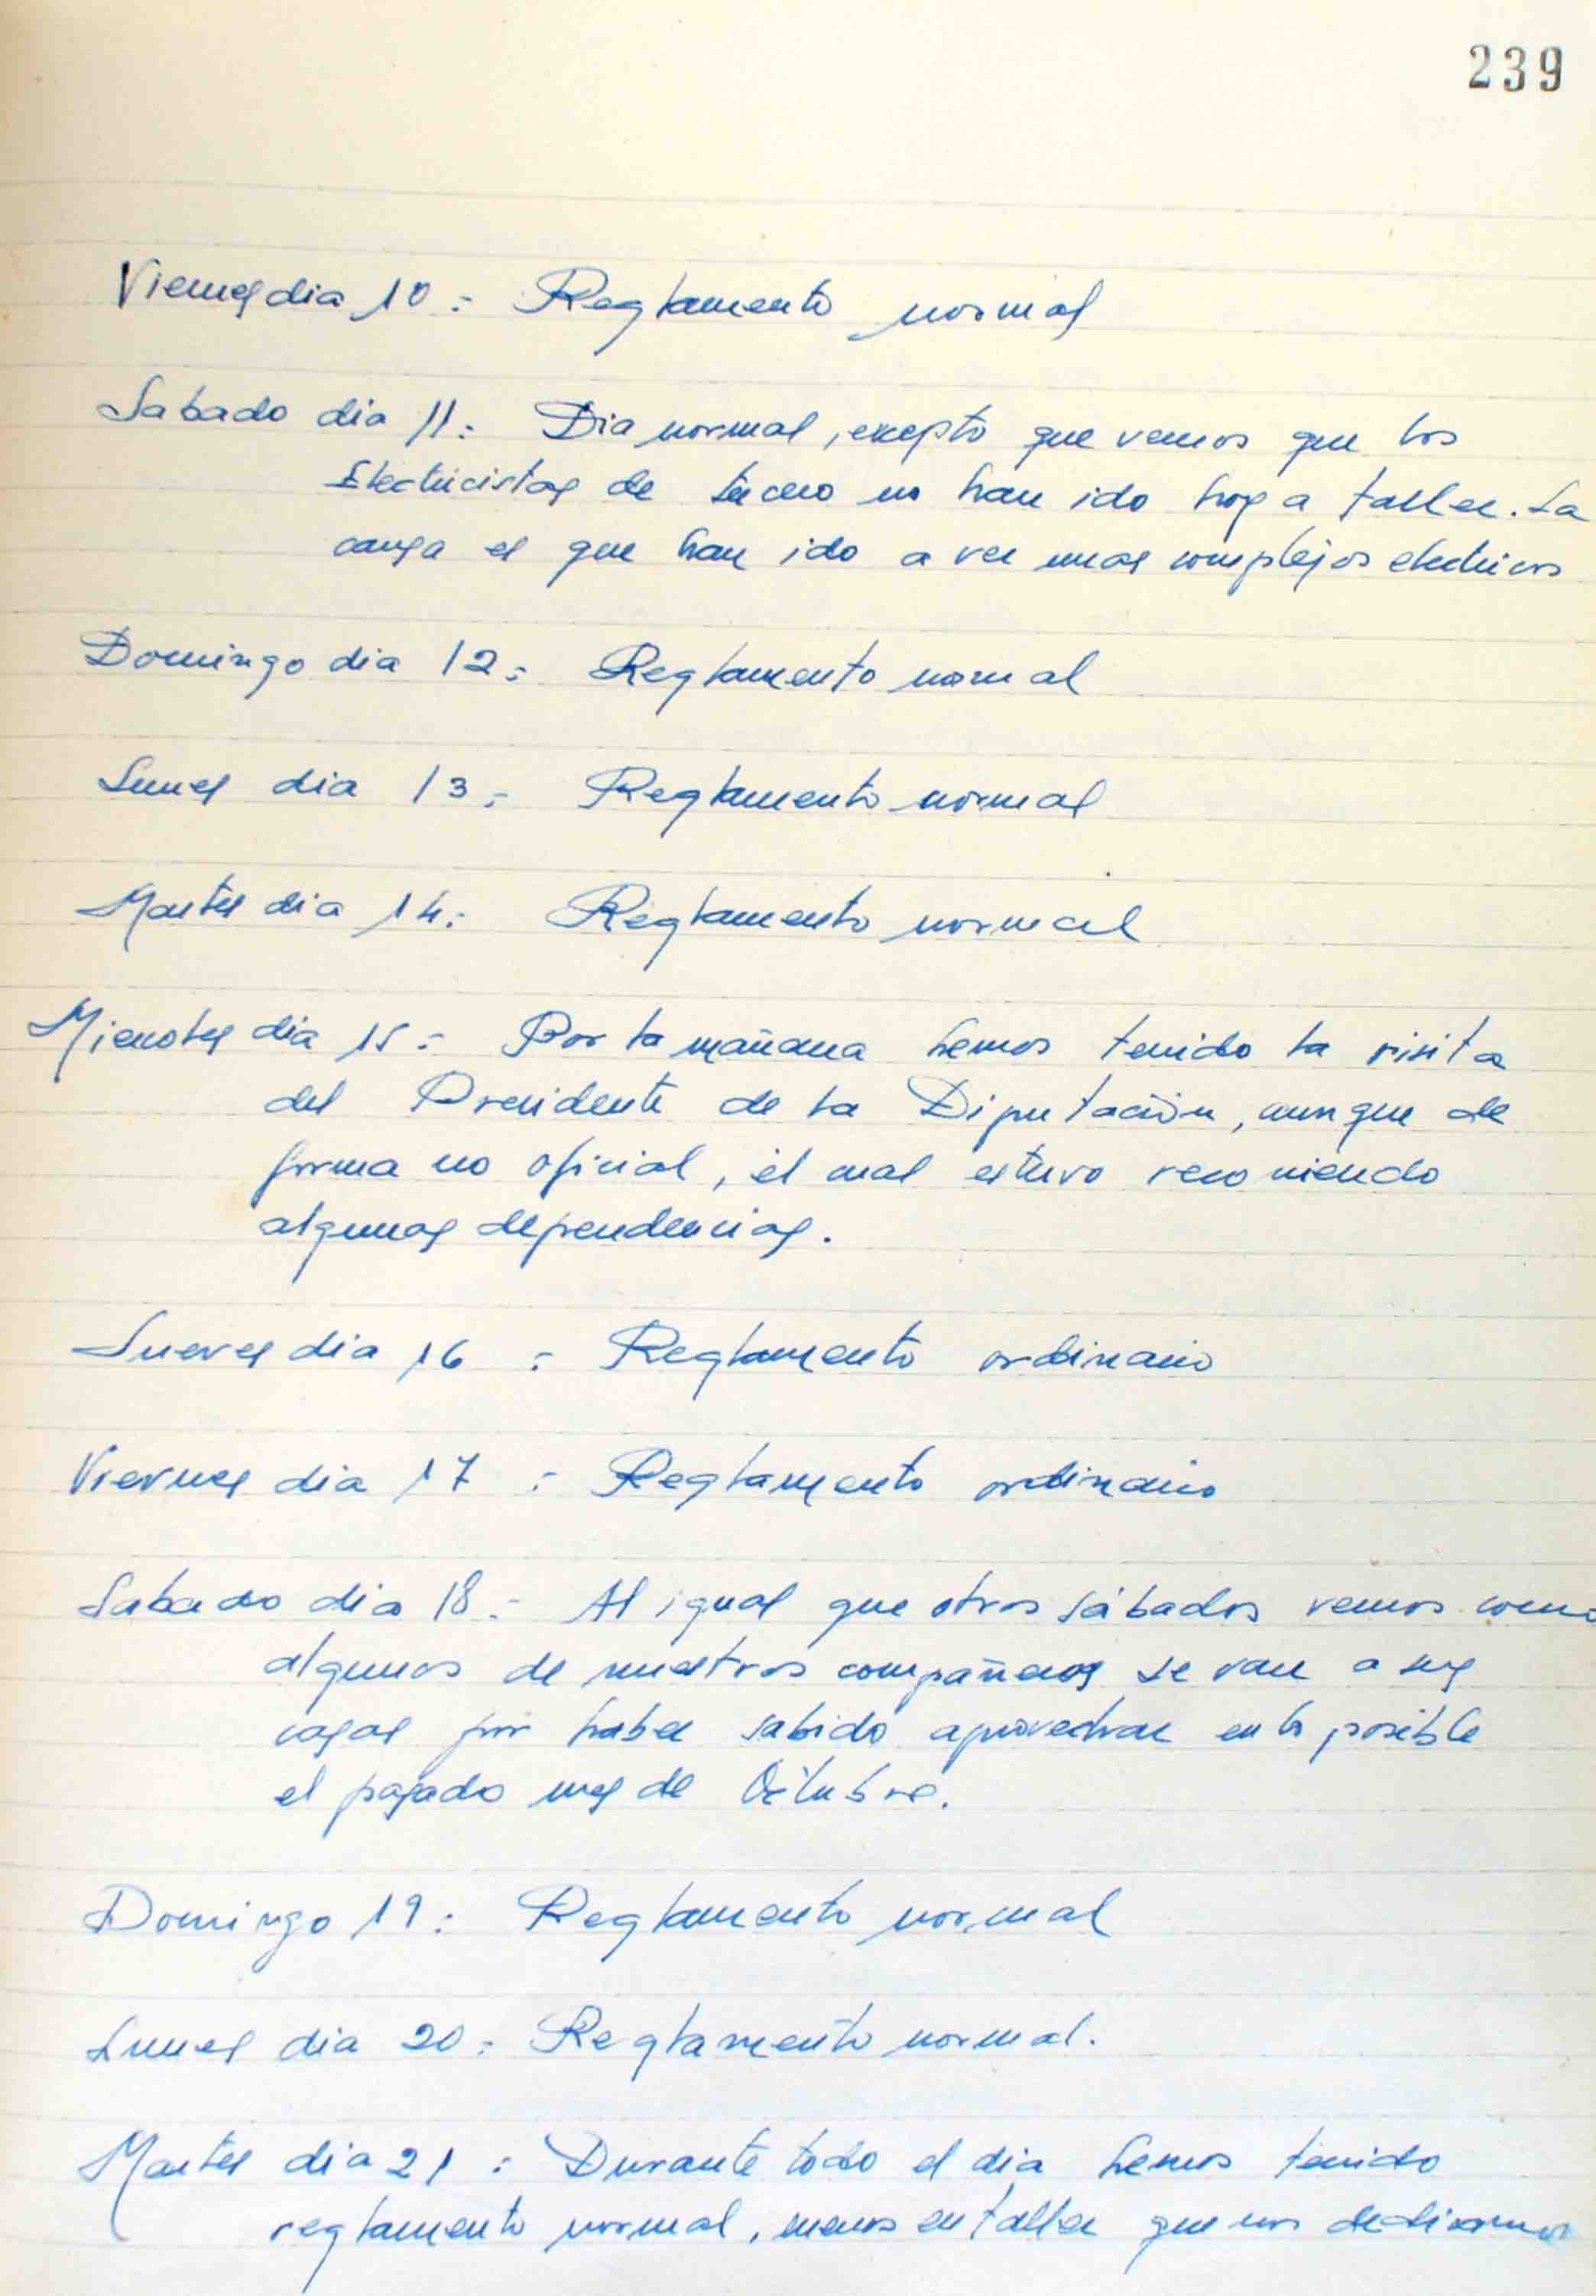 239
Viernes dia 10 : Reglamento normal
Sabado dia 11 : Dia normal, excepto que vemos que los
Electricistas de tercero no han ido hoy a taller. La
causa es que han ido a ver unos complejos electricos
Domingo dia 12 : Reglamento normal
Lunes dia 13 : Reglamento normal
Martes dia 14 : Reglamento normal
Miercoles dia 15 : Por la mañana hemos tenido la visita
del Presidente de la Diputación, aunque de
forma no oficial, el cual estuvo recorriendo
algunas dependencias.
Jueves dia 16 : Reglamento ordinario
Viernes dia 17 : Reglamento ordinario
Sabado dia 18 : Al igual que otros sábados vemos como
algunos de nuestros compañeros se van a sus
casas por haber sabido aprovechar en lo posible
el pasado mes de Octubre.
Domingo 19 : Reglamento normal
Lunes dia 20 : Reglamento normal.
Martes dia 21 : Durante todo el dia hemos tenido
reglamento normal, menos en taller que nos dedicamos